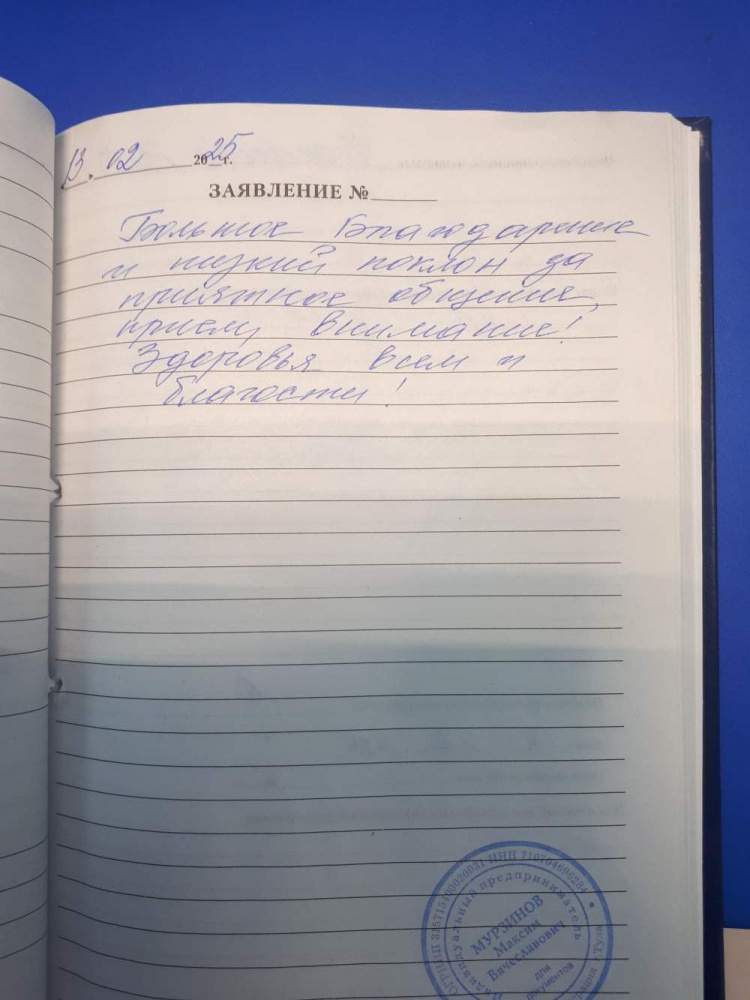 13. 02 2025 г.
ЗАЯВЛЕНИЕ №
Большое Благодарение
и низкий поклон за
приятное общение,
прием, внимание!
Здоровья всем и
благости!
ИНН 710704696284
Индивидуальный предприниматель
МУРЗИНОВ
Максим
Вячеславович
для
документов